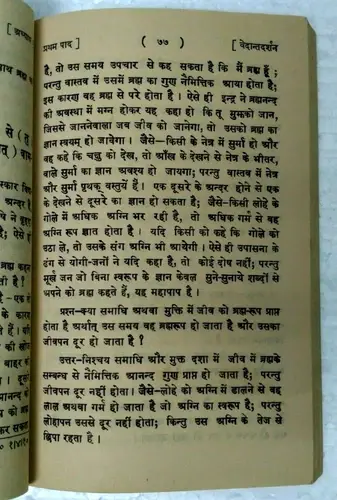 प्रथम पाद ] ( ७७ ) [ वेदान्तदर्शन
है, तो उस समय उपचार से कह सकता है कि मैं ब्रह्म हूँ ;
परन्तु वास्तव में उसमें ब्रह्म का गुण नैमित्तिक आया होता है;
इस कारण वह ब्रह्म से परे होता है । ऐसे ही इन्द्र ने ब्रह्मानन्द
की अवस्था में मग्न होकर यह कहा हो कि तू मुझको जान,
जिससे जाननेवाला जब जीव को जानेगा, तो उसको ब्रह्म का
ज्ञान स्वयम् हो जावेगा । जैसे—किसी के नेत्र में सुर्मा हो और
वह कहे कि चक्षु को देख, तो आँख के देखने से नेत्र के भीतर,
वाले सुर्मा का ज्ञान अवश्य हो जायगा; परन्तु वास्तव में नेत्र
और सुर्मा पृथक् वस्तुयें हैं । एक दूसरे के अन्दर होने से एक
के देखने से दूसरे का ज्ञान हो सकता है; जैसे-किसी लोहे के
गोले में अधिक अग्नि भर रही है, तो अधिक गर्म से वह
अग्नि रूप ज्ञात होता है । यदि किसी को कहे कि गोले को
उठा ले, तो उसके संग अग्नि भी आयेगी । ऐसे ही उपासना के
ढंग से योगी-जनों ने यदि कहा है, तो कोई दोष नहीं; परन्तु
मूर्ख जन जो बिना स्वरूप के ज्ञान केवल सुने-सुनाये शब्दों से
अपने को ब्रह्म कहते हैं, यह महापाप है ।
प्रश्न-क्या समाधि अथवा मुक्ति में जीव को ब्रह्म-रूप प्राप्त
होता है अर्थात् उस समय वह ब्रह्मरूप हो जाता है और उसका
जीवपन दूर हो जाता है ?
उत्तर-निश्चय समाधि और मुक्त दशा में जीव में ब्रह्मके
सम्बन्ध से नैमित्तिक आनन्द गुण प्राप्त हो जाता है; परन्तु
जीवपन दूर नहीं होता । जैसे-लोहे को अग्नि में डालने से वह
लाल अथवा गर्म हो जाता है जो अग्नि का स्वरूप है; परन्तु
लोहापन उससे दूर नहीं होता; किन्तु उस अग्नि के तेज से
छिपा रहता है ।